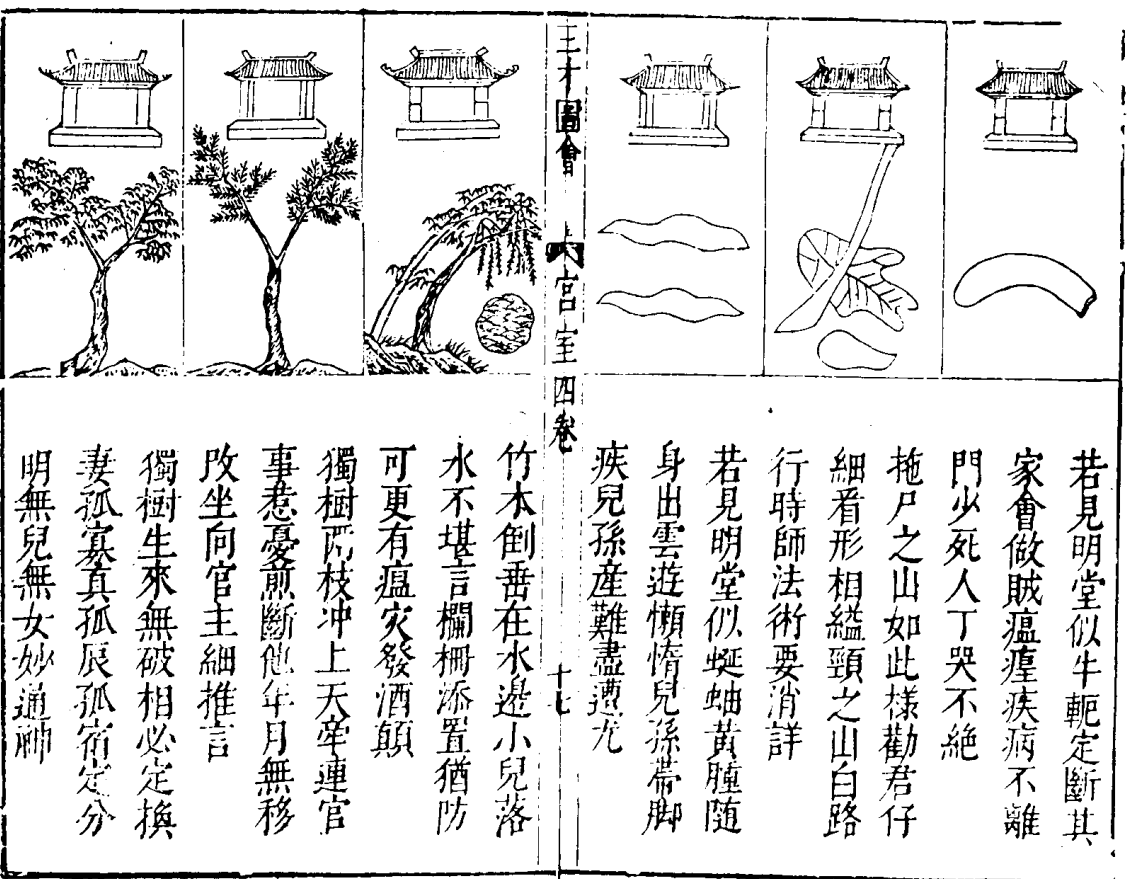 若見明堂似牛軛定斷其
家會做賊瘟㾮疾病不離
門少死人丁哭不絶
拖尸之山如此樣勸君仔
細看形相縊頸之山白路
行時師法術要消詳
若見明堂似蜒蚰黃腫随
身出雲遊懶惰兒孫帶脚
疾兒孫産難盡遭尤
三才圖會
宮室四卷
十七
竹木倒垂在水邊小兒落
水不堪言欄柵添置猶防
可更有瘟灾發酒顛
獨樹兩枝冲上天牽連官
事惹憂煎斷他年月無移
改坐向官主細推言
獨樹生來無破相必定換
妻孤寡真孤辰孤宿定分
明無兒無女妙通神